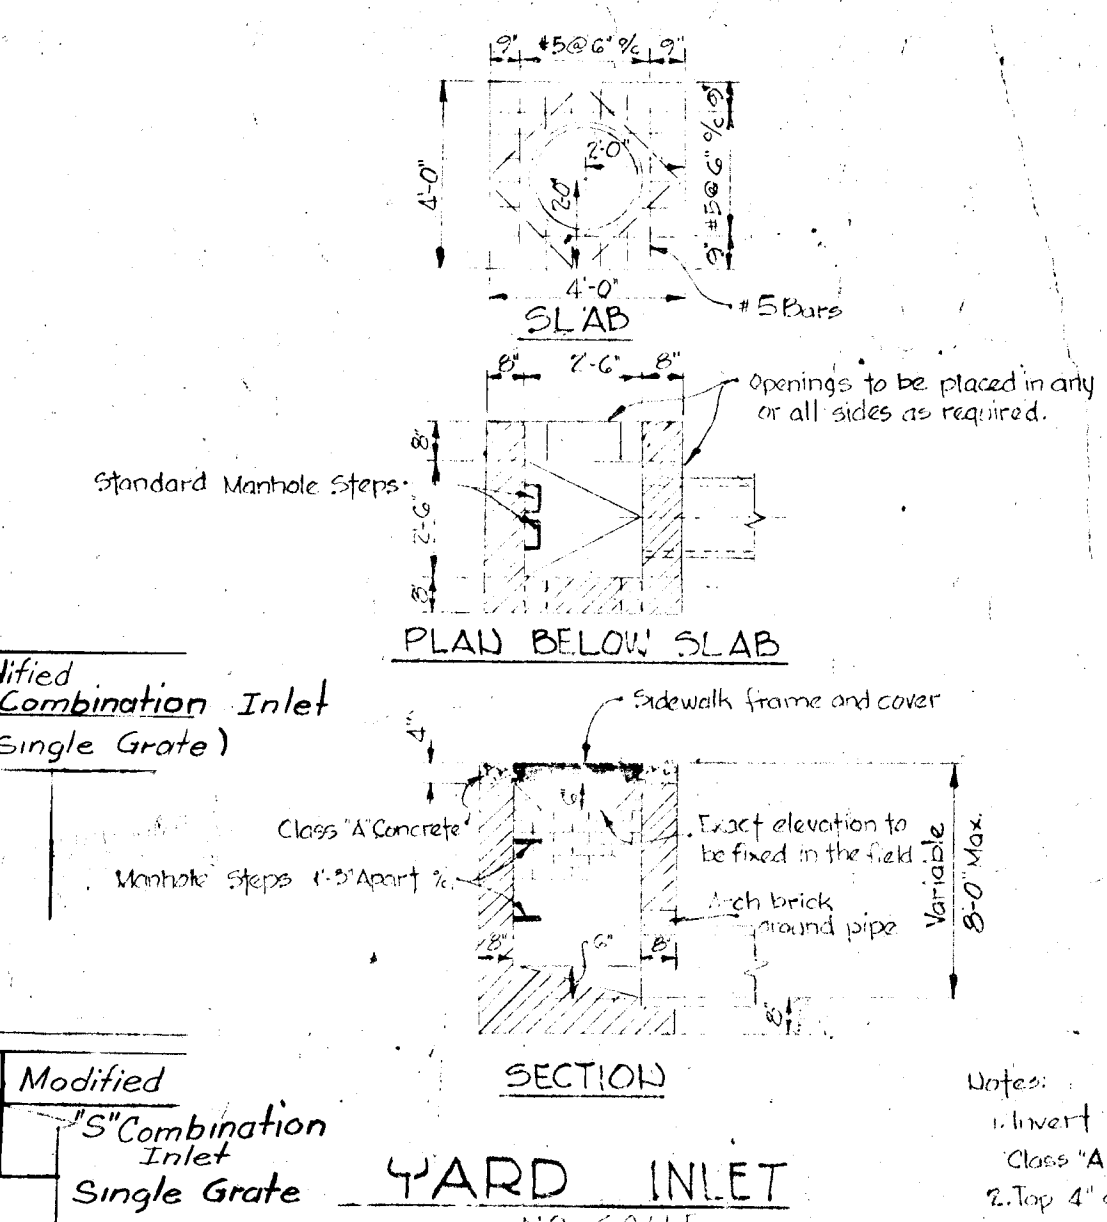 9" #5@6" %c 9"
4'-0"
2'-0"
2'-0"
9" #5@6" %c 9"
4'-0"
SLAB
#5 Bars
8" 2'-6" 8"
Openings to be placed in any
or all sides as required.
8"
Standard Manhole Steps
2'-6"
8"
PLAN BELOW SLAB
Combination Inlet
Single Grate)
Sidewalk frame and cover
4"
6"
Class "A" Concrete
Exact elevation to
be fixed in the field.
Manhole Steps 1'-3" Apart %c.
Arch brick
around pipe
Variable
8'-0" Max.
8" 6" 8"
8"
SECTION
Modified
"S" Combination
Inlet
Single Grate
YARD INLET
Notes:
1. Invert
Class "A
2. Top 4"